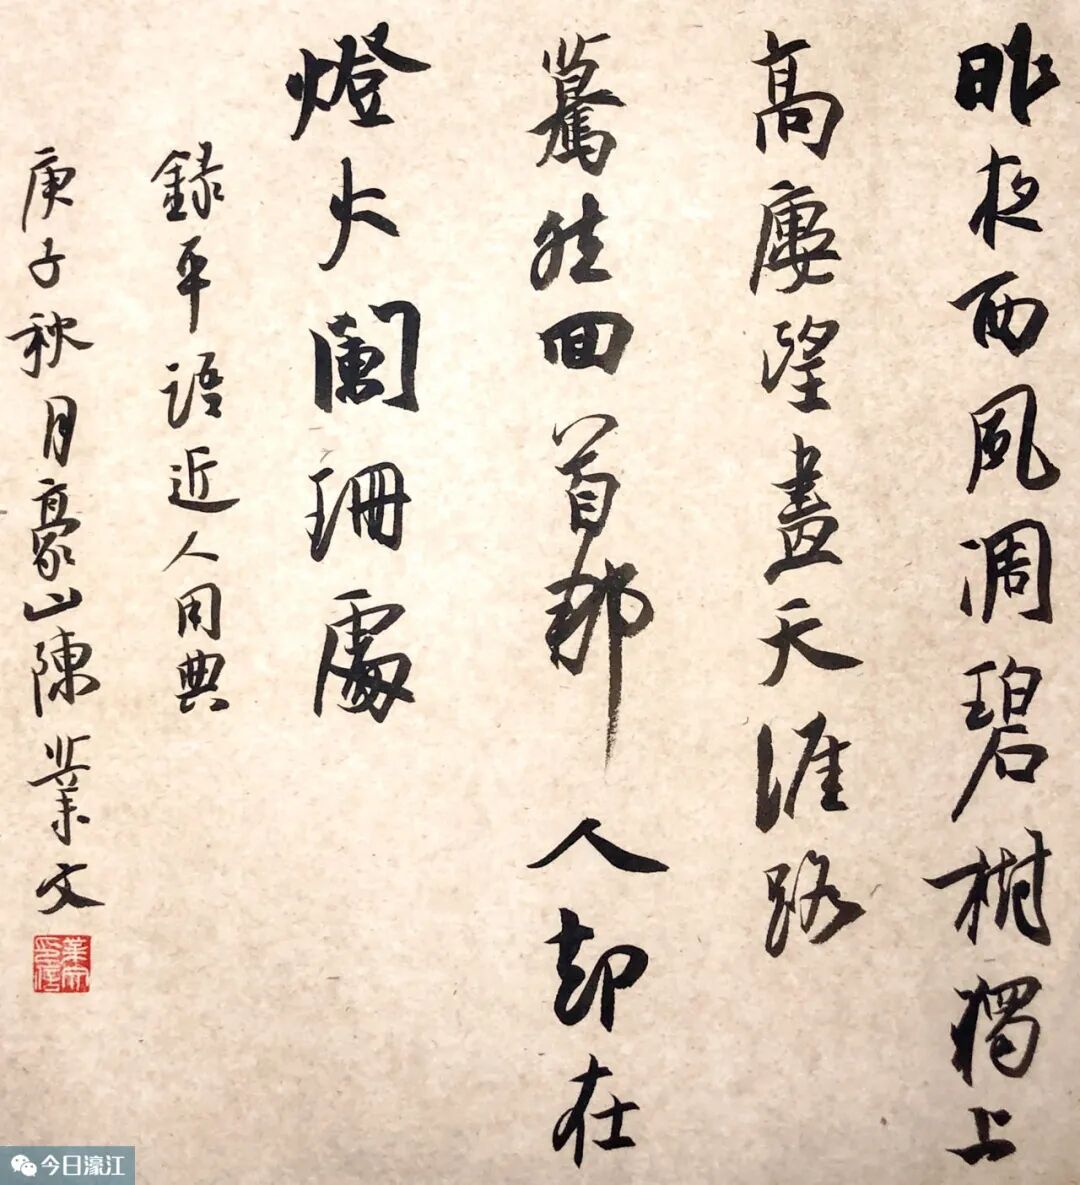 昨夜西风凋碧樹獨上
高廔望盡天涯路
驀然回首那人却在
燈火闌珊處
錄平語近人用典
庚子秋月豪山陳業文
今日濠江